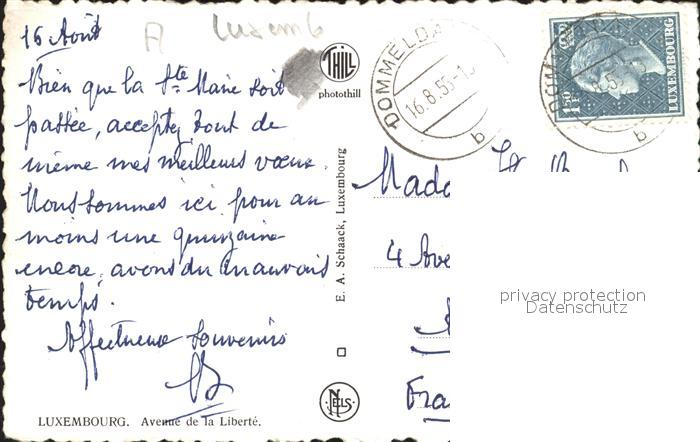 16 Août
A Luxemb
Bien que la Ste Marie soit
passée, acceptez tout de
même mes meilleurs vœux.
Nous sommes ici pour au
moins une quinzaine
encore, avons du mauvais
temps.
Affectueux souvenirs
LUXEMBOURG. Avenue de la Liberté.
THILL
photothill
E. A. Schaack, Luxembourg
NELS
DOMMELDA
16.8.55-1
b
1F50
LUXEMBOURG
DOMM
8.5
b
Mada
4 Ave
Fra
privacy protection
Datenschutz